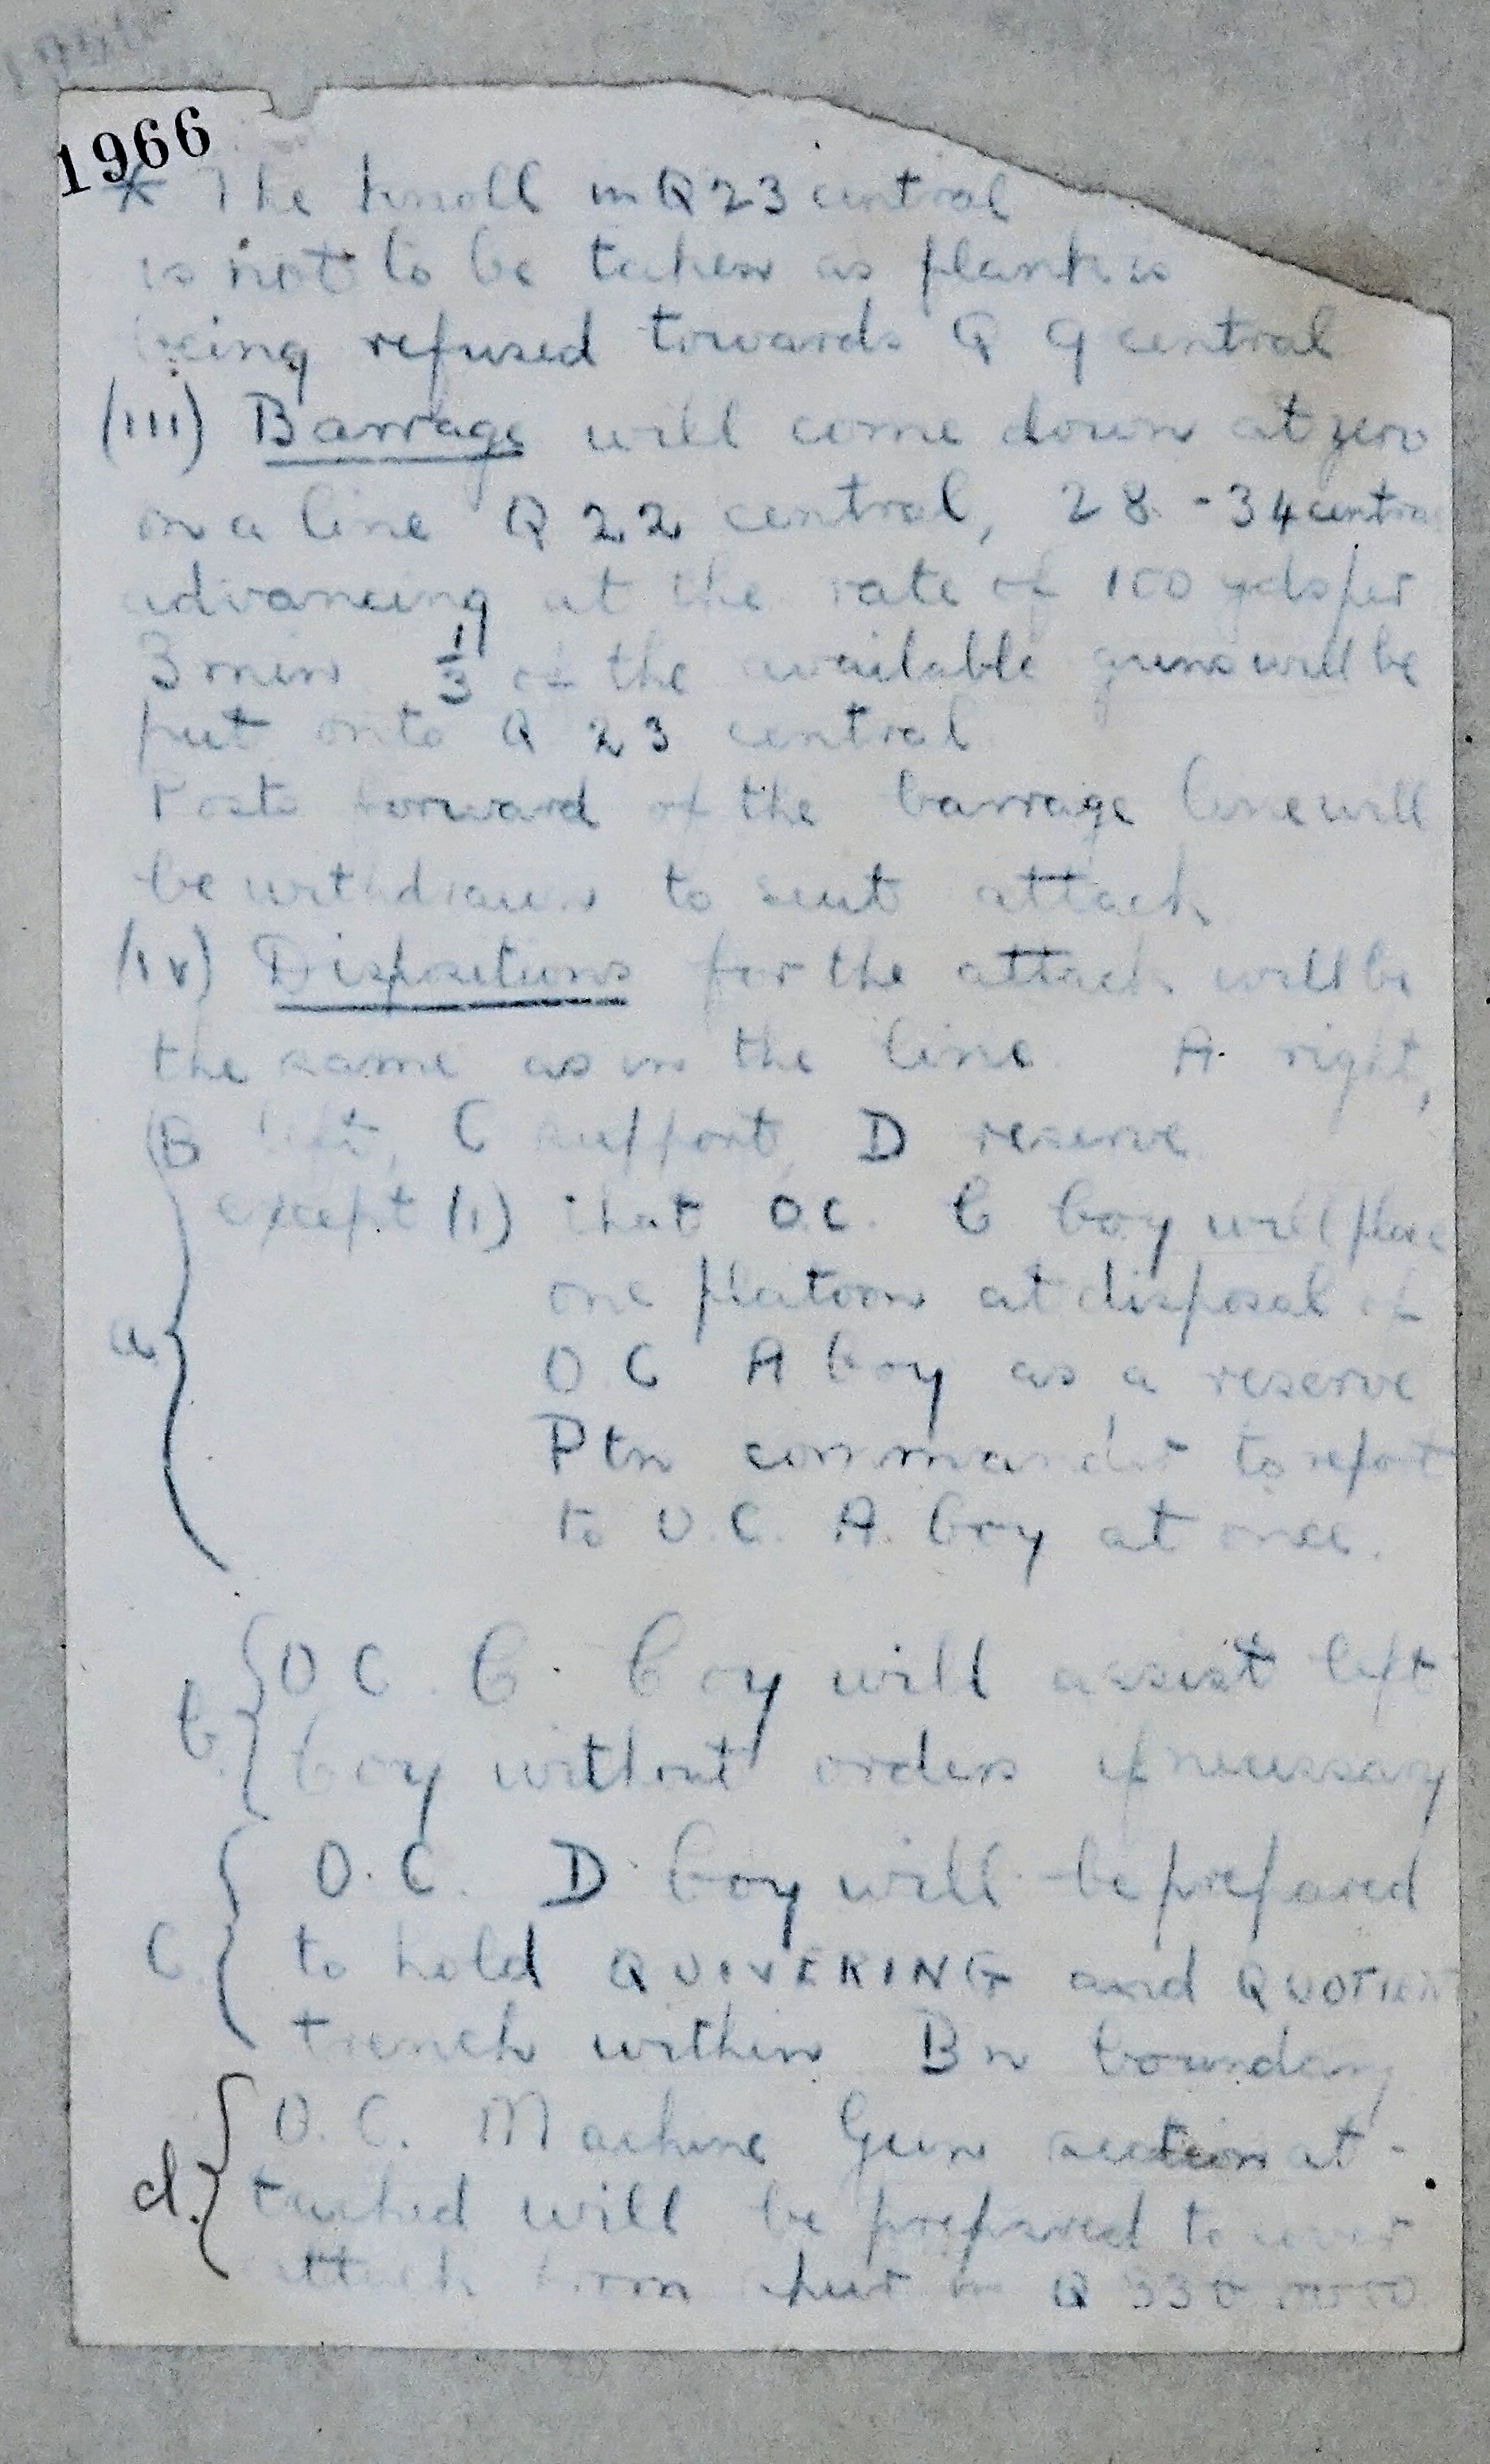 1966
* The knoll in Q 23 central
is not to be taken as flank is
being refused towards Q 9 central
(III) Barrage will come down at zero
on a line Q 22 central, 28 - 34 centra
advancing at the rate of 100 yds per
3 min 1/3 of the available guns will be
put onto Q 23 central
Posts forward of the barrage line will
be withdrawn to suit attack
(IV) Dispositions for the attack will be
the same as in the line. A. right,
B left, C support, D reserve
a. except (1) that O.C. C Coy will place
one platoon at disposal of
O C A Coy as a reserve
Ptn commander to report
to O.C. A. Coy at once.
O C. C. Coy will assist left
b. Coy without orders if necessary
O. C. D Coy will be prepared
C. to hold QUIVERING and QUOTIENT
trench within Bn boundary
O. C. Machine Gun section at-
d. tached will be prepared to cover
attack from spur in Q